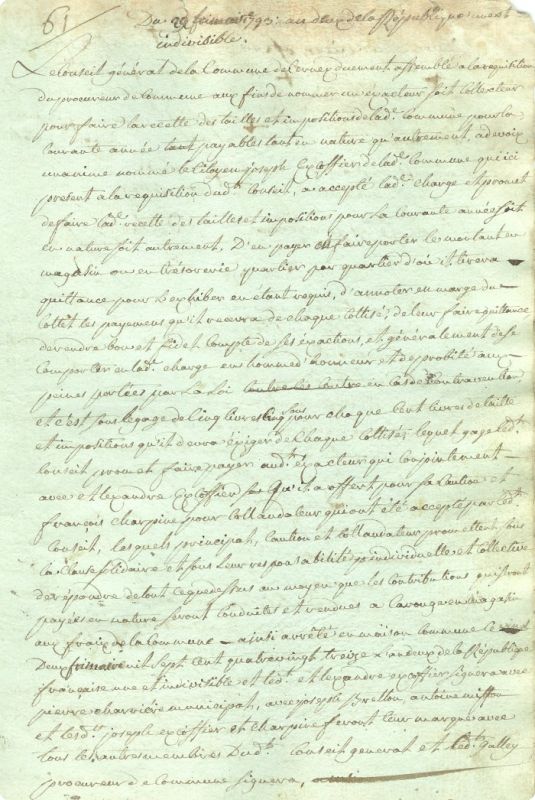 61 Du 29 frimaire 1793. an deux de la République une et
indivisible.
Le Conseil général de la Commune de Cernex dument assemblé a la requisition
du procureur de Commune aux fins de nommer un exacteur soit collecteur
pour faire la recette des tailles et impositions de lad.e Commune pour la
courante année tant payables tant en nature qu'autrement, a de voix
unanime nommé le Citoyen joseph Excoffier de lad.e Commune qui ici
present a la requisition dud.t Conseil, a accepté lad.e Charge et promet
de faire lad.e recette des tailles et impositions pour la courante année soit
en nature soit autrement. D'en payer et faire porter le montant en
magasin ou en trésorerie quartier par quartier d'où il tirera
quittance pour l'exhiber en étant requis, d'annoter en marge du
Cottet les payemens qu'il recevra de chaque Cottisé, de leur faire quittance
de rendre bon et fidel compte de ses exactions, et généralement de se
comporter en lad.e charge en homme d'honneur et de probité aux
peines portées par la Loi en cas de Contravention
et c'est sous le gage de Cinq livres Cinq sous pour chaque Cent livres de taille
et impositions qu'il devra exiger de Chaque Cottisés lequel gage led.t
Conseil promet faire payer aud.t exacteur qui conjointement
avec et Lexandre Excoffier qu'il a offert pour sa Caution et
françois Charpine pour Collaudateur qui ont été accepté par led.t
Conseil, lesquels principal, Caution et Collaudateur promettent, sous
la Clause solidaire et sous leur responsabilités individuelle et Collective
de répondre de tout ce que dessus au moyen que les contributions qui seront
payées en nature seront conduites et rendues a Carouge en magasin
aux fraix de la Commune – ainsi arrêté en maison Commune Ce
Deux frimaire mil sept cent quatre vingt treize l'an deux de la République
française une et indivisible et led.t et Lexandre excoffier signera avec
pierre Charriere municipal, avec joseph Bretton, antoine
et lesd.ts joseph excoffier et Charpine feront leur marque avec
tous les autres membres Dud.t Conseil general et led.t Galley
procureur de Commune signera,